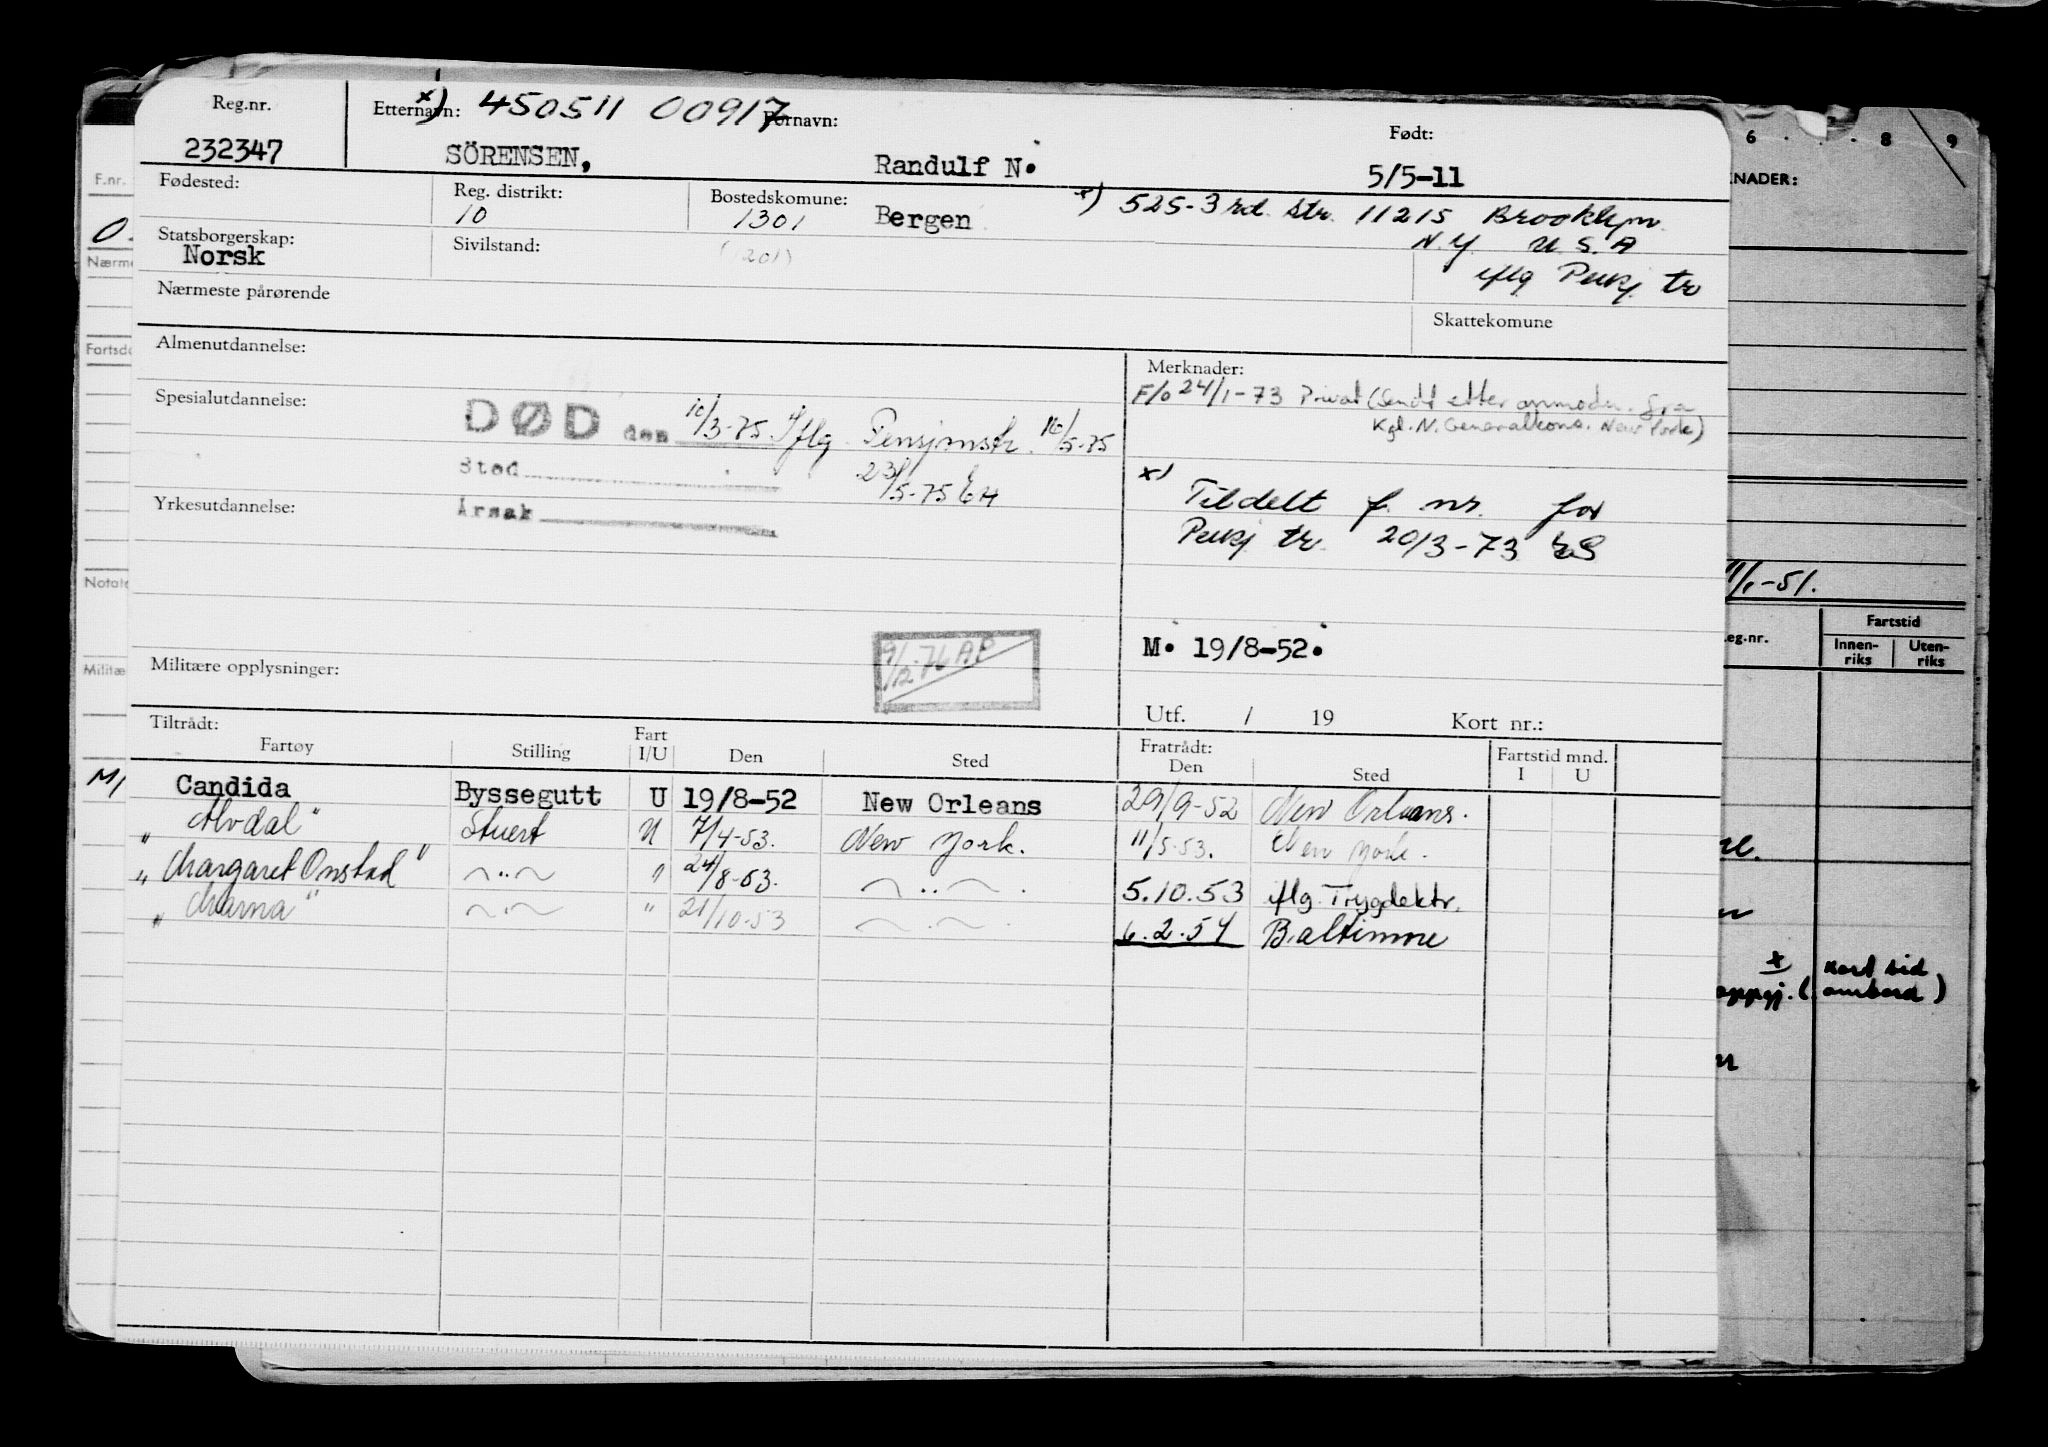 Reg.nr. Etternavn: x) 450511 00917 Fornavn: Født:
232347 SÖRENSEN, Randulf N. 5/5-11
Fødested: Reg. distrikt: Bostedskomune:
10 1301 Bergen x) 525-3rd. Str. 11215 Brooklyn.
Statsborgerskap: Sivilstand: N.Y. U.S.A
Norsk iflg Pensj. tr
Nærmeste pårørende
Skattekomune
Almenutdannelse: Merknader:
F/o 24/1-73 Privat (Sendt etter anmodn. fra
Spesialutdannelse: Kgl. N. Generalkons. New York)
DØD den 10/3-75. Iflg. Pensjonstr. 16/5-75
Sted 23/5-75 EH
x) Tildelt f. nr. for
Yrkesutdannelse: Årsak
Pensj tr. 20/3-73 ES
M. 19/8-52.
Militære opplysninger: 9/12-76 AP
Utf. / 19 Kort nr.:
Tiltrådt: Fratrådt:
Fartøy Stilling Fart I/U Den Sted Den Sted Fartstid mnd. I U
Candida Byssegutt U 19/8-52 New Orleans 29/9-52 New Orleans.
" Alvdal " Stuert U 7/4-53. New York. 11/5-53. New York.
" Margaret Onstad " ~"~ " 24/8-53. ~"~ 5.10.53 iflg. Trygdektr.
" Marna " ~"~ " 21/10-53 ~"~ 6.2.54 Baltimore
F.nr.
O.
Nærme
Fartsdo
Notate
Militæ
M/
6 8 9
KNADER:
11/1-51.
eg.nr. Fartstid
Innen-riks Uten-riks
x
oppgj. (. ombord)